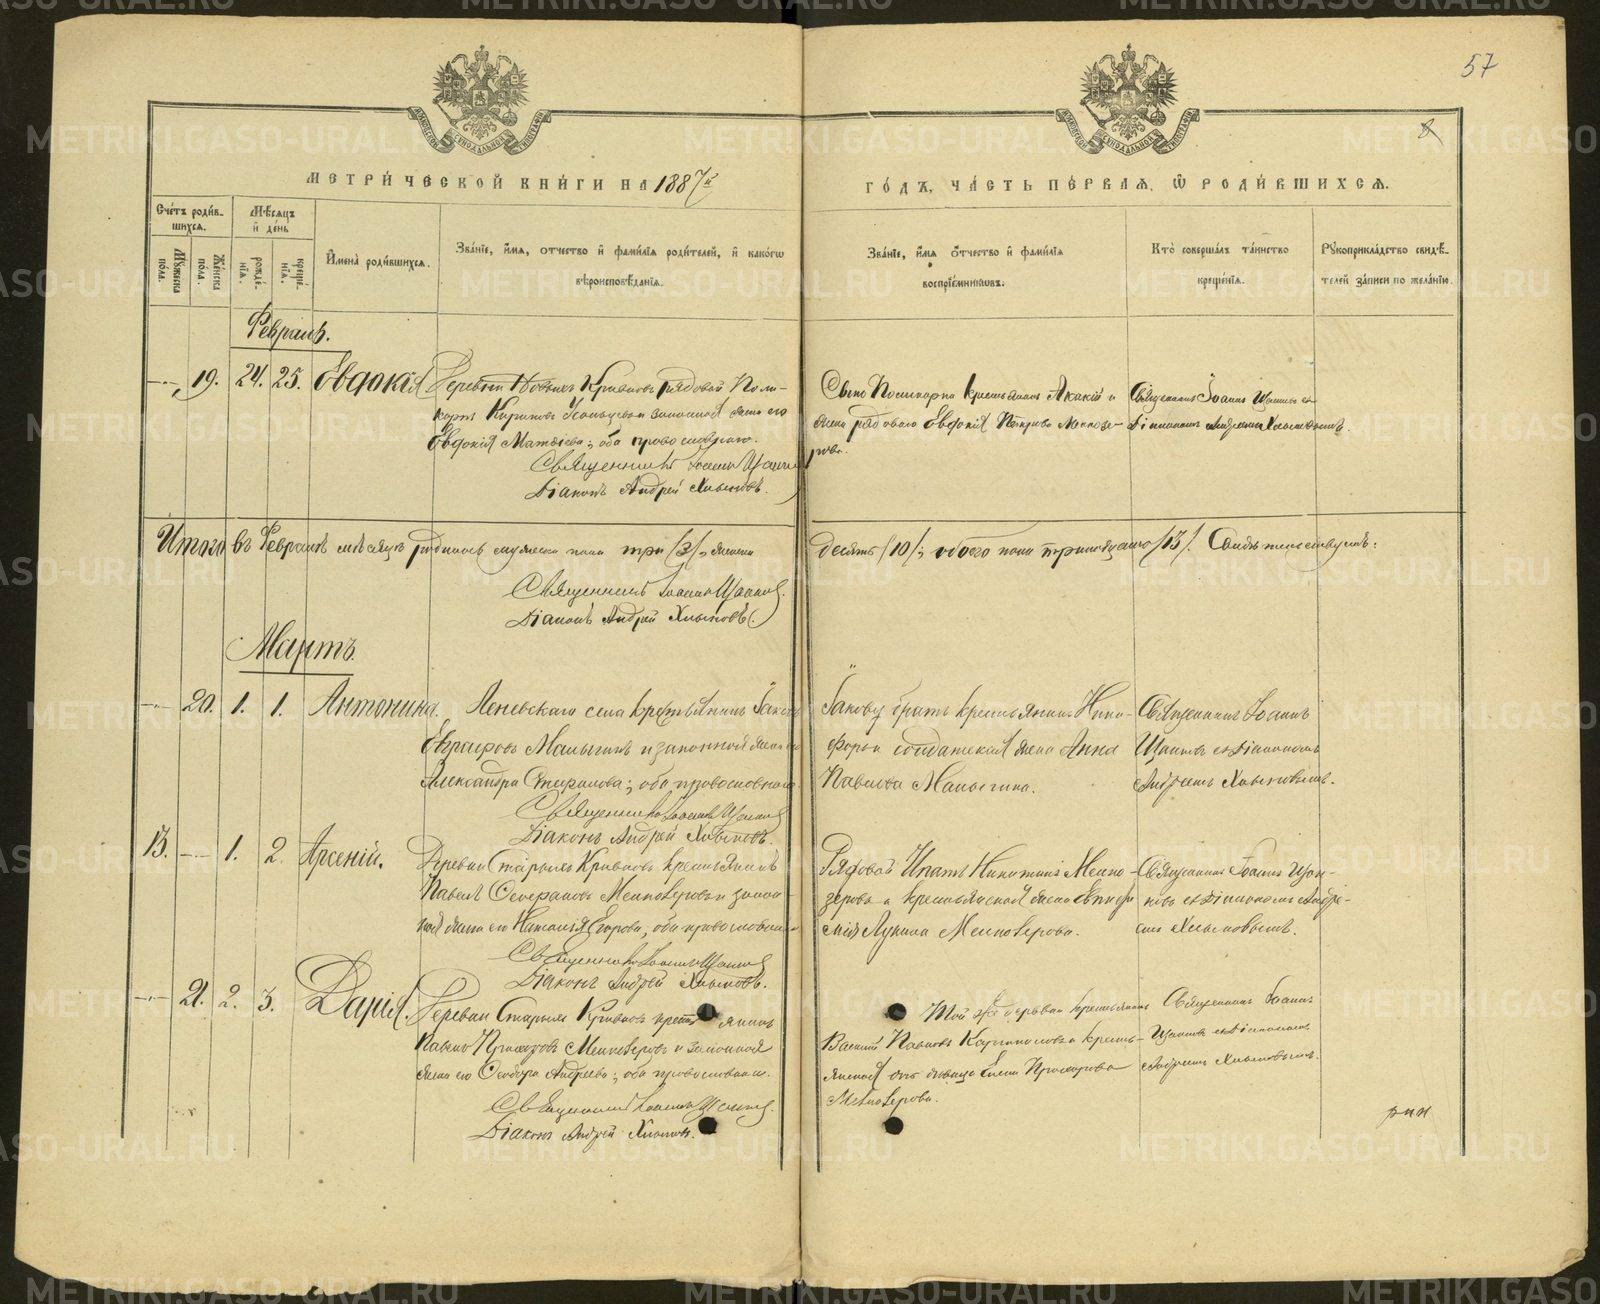 57
8
МЕТРИ́ЧЕСКОЙ КНИ́ГИ НА 1887й
ГО́ДЪ, ЧА́СТЬ ПЕ́РВАЯ, Ѿ РОДИ́ВШИХСЯ.
Сче́тъ роди́в-
шихся.
Мѣ́сяцъ
и҆ де́нь
Мꙋ́жеска по́ла.
Же́нска по́ла.
рожде́-
нїѧ.
креще́-
нїѧ.
И҆мена̀ роди́вшихся.
Зва́нїе, и҆́мя, ѻ҆тчество и҆ фами́лїя роди́телей, и҆ како́гѡ
вѣ́роисповѣ́данїя.
Зва́нїе, и҆́мя ѻ҆́тчество и҆ фами́лїя
воспрїе́мникѡвъ.
Кто̀ соверша́лъ та́инство
креще́нїя.
Рꙋкоприкла́дство свидѣ́-
телей за́писи по жела́нїю.
Февраль.
19. 24. 25. Евдокія
Деревни Новыхъ Кривковъ рядовой Поли-
карпъ Законная жена его
Евдокія Матвѣева; оба православнаго.
Священникъ Іоаннъ
Діаконъ Андрей Хлыновъ.
Сынъ Поликарпа крестьянинъ Акакій и
жена рядоваго Евдокія Петрова Мелкозе-
рова.
Священникъ Іоаннъ
діакономъ Андреемъ Хлыновымъ.
Итого въ Февралѣ мѣсяцѣ родилось мужеска пола три /3/, женска
десять /10/; обоего пола тринадцать /13/. Свидѣтельствуемъ:
Священникъ Іоаннъ
Діаконъ Андрей Хлыновъ.
Мартъ.
20. 1. 1. Антонина.
Леневскаго села крестьянинъ Іаковъ
Евграфовъ Малыгинъ и законная жена его
Александра Стефанова; оба православнаго.
Священникъ Іоаннъ
Діаконъ Андрей Хлыновъ.
Іакову братъ крестьянинъ Ники-
форъ и солдатская жена Анна
Павлова Малыгина.
Священникъ Іоаннъ
съ діакономъ
Андреемъ Хлыновымъ.
13. 1. 2. Арсеній.
Деревни Старыхъ Кривковъ крестьянинъ
Павелъ Мелкозеровъ и закон-
ная жена его Наталія Егорова; оба православнаго
Священникъ Іоаннъ
Діаконъ Андрей Хлыновъ.
Рядовой Ипатъ Никитинъ Мелко-
зеровъ и крестьянская жена
Лукина Мелкозерова.
Священникъ Іоаннъ
съ діакономъ Андре-
емъ Хлыновымъ.
21. 2. 3. Дарія.
Деревни Старыхъ Кривковъ крестьянинъ
Павелъ Прохоровъ Мелкозеровъ и законная
жена его Андреева; оба православнаго.
Священникъ Іоаннъ
Діаконъ Андрей Хлыновъ.
Той же деревни крестьянинъ
Василій Павловъ и кресть-
янская дочь дѣвица Елена Прохорова
Мелкозерова.
Священникъ Іоаннъ
съ діакономъ
Андреемъ Хлыновымъ.
METRIKI.GASO-URAL.RU